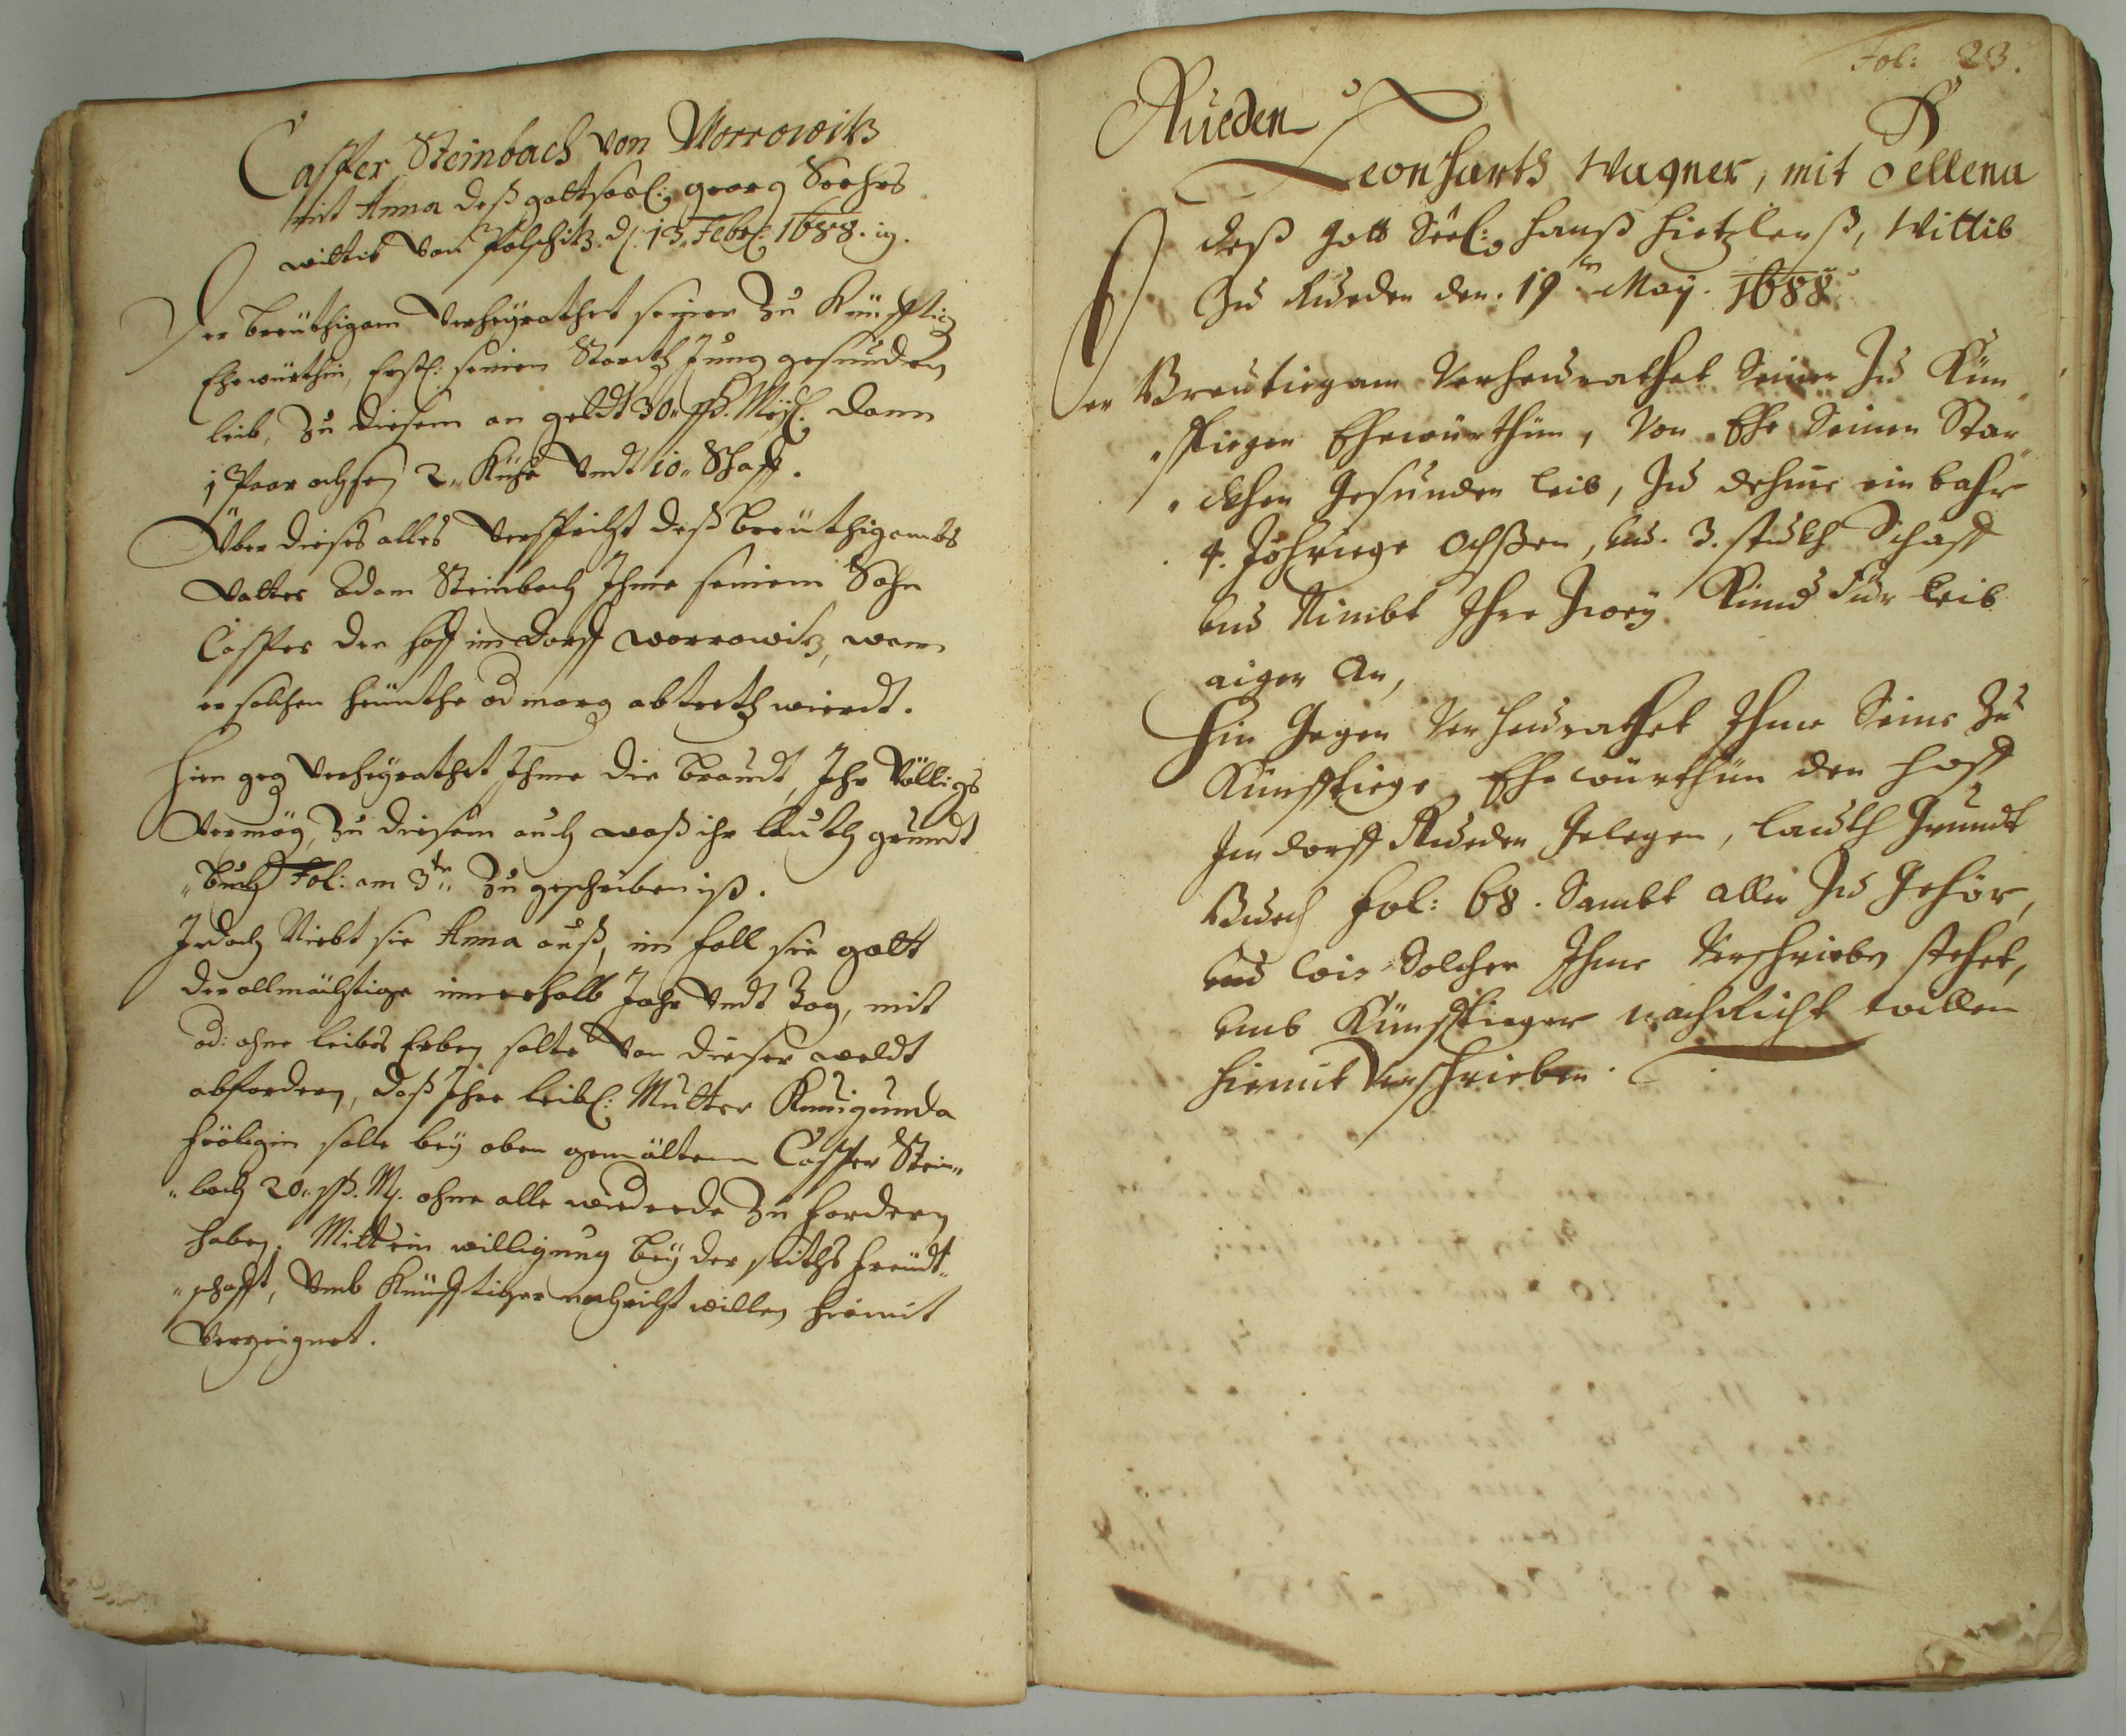 Casper Steinbach von Worrowitz
mit Anna deß gottseel: georg Sochrs
wittib von Polschitz. d. 13. Febr: 1688. ig.
Der breüthigam Verheyrathet seiner Zu Künfftig
Ehewürthin, Erstl: seinen Starckh Jung gesunden
leib, Zu diesem an geldt 30. ßß. Meiß: dann
1 Paar ochsen 2. Kühe Undt 10. Schaff.
Über dieses alles Verspricht deß breüthigambs
Vatter Adam Steinbach Ihme seinem Sohn
Casper den hoff im dorff worrowitz, wann
er solchen heünthe od morg abtretten wierdt.
Hien geg Verheyrathet Ihme die braudt, Ihr Völligs
Vermög, Zu diesem auch waß ihr lauth grundt
buch Fol: am 3ten Zu geschrieben iß.
Jedoch Niebt sie Anna auß, im fall sie gott
der allmächtige innerhalb Jahr Undt Tag, mit
od: ohne leibes Erben solte Von dieser weldt
abfordern, daß Ihre leibl: Mutter Kunigunda
solte bey oben gemältem Casper Stein
bach 20. ßß. M. ohne alle wiederede Zu fordern
haben. Mitt ein willigung beyderseiths freündt
schafft, Umb Künfftiger nachricht willen hiemit
Verzeignet.
Fol: 23.
Rueden
Leonharth Wagner, mit Hellena
deß Gott Seel: hanß hietzlerß, Wittib
Zu Rueden den. 19ten May. 1688.
Der Breutiegam Verheurathet Seiner Zu Kün
fftiegen Ehewürthin, Von Ehe Seinen Star
ckhen Gesunden leib, Zu dehme ein bahr
4. Jähriege Ochßen, und. 3. stukh Schaff
und Nimbt Ihre Zwey Kind Für leib
aigen An,
Hin Gegen Verheurathet Ihme Seine Zu
Künfftiege Ehewürthin den Hoff
Im dorff Rueden Gelegen, lauth Grundt
Buech fol: 68. Sambt aller Zu Gehör,
und wie Solcher Ihme Verschrieben stehet,
umb Künfftieger nachricht willen
hiemit Verschrieben.